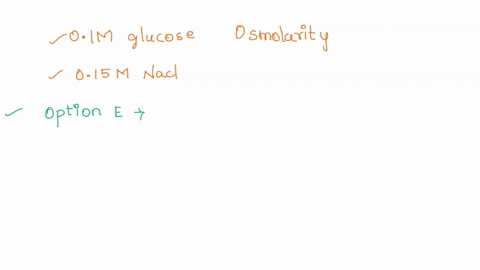 ✓ 0.1M glucose Osmolarity
✓ 0.15M Nacl
✓ Option E →